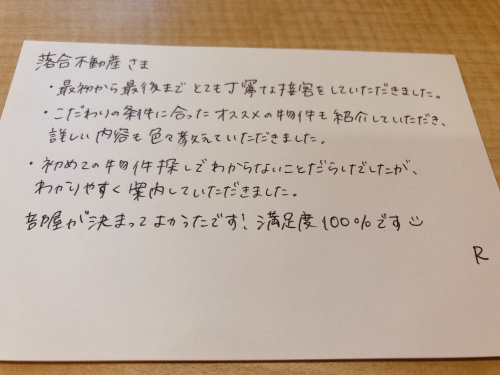 落合不動産さま
・最初から最後までとても丁寧な接客をしていただきました。
・こだわりの条件に合ったオススメの物件も紹介していただき、
詳しい内容も色々教えていただきました。
・初めての物件探しでわからないことだらけでしたが、
わかりやすく案内していただきました。
お部屋が決まってよかったです！満足度100%です
R